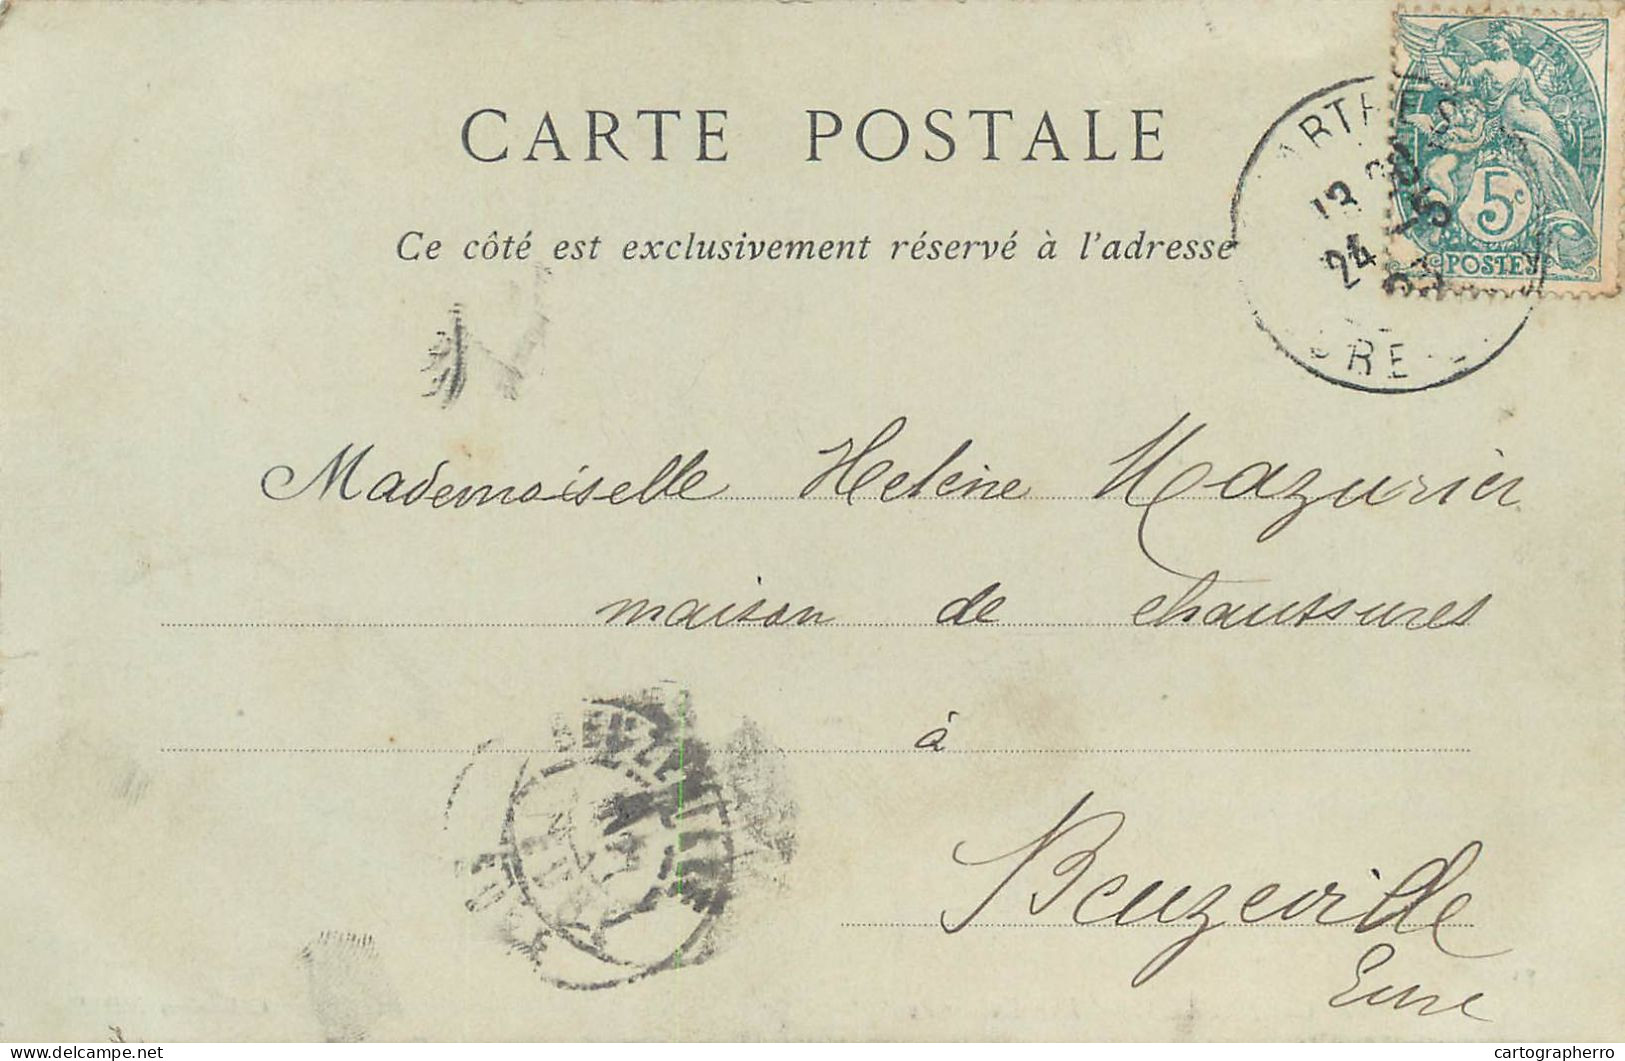 CARTE POSTALE
Ce côté est exclusivement réservé à l'adresse
5c
POSTES
24
Mademoiselle Helène Mazurier
maison de chaussures
à
Beuzeville
Eure
www.delcampe.net
cartographerro